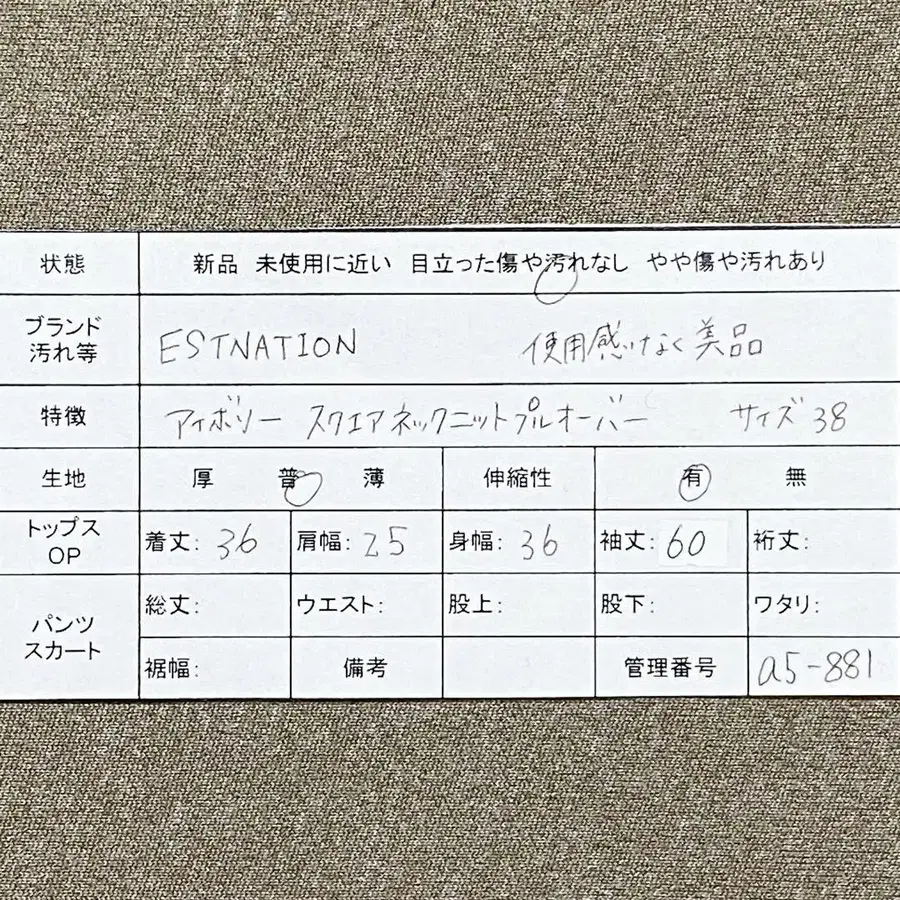 状態 新品 未使用に近い 目立った傷や汚れなし やや傷や汚れあり
ブランド
汚れ等 ESTNATION 使用感なく美品
特徴 アイボリー スクエアネックニットプルオーバー サイズ 38
生地 厚 普 薄 伸縮性 有 無
トップス
OP 着丈: 36 肩幅: 25 身幅: 36 袖丈: 60 裄丈:
パンツ
スカート 総丈: ウエスト: 股上: 股下: ワタリ:
裾幅: 備考 管理番号 a5-881